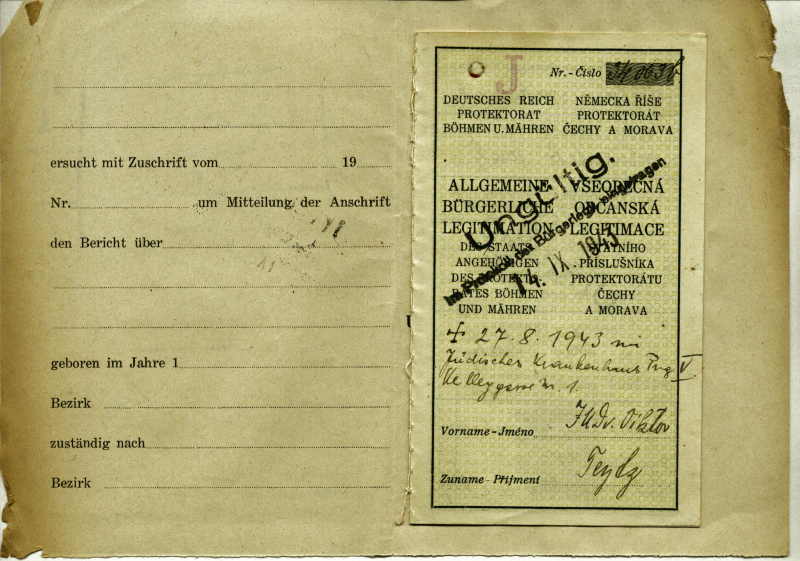 ersucht mit Zuschrift vom 19
Nr. um Mitteilung der Anschrift
den Bericht über
geboren im Jahre 1
Bezirk
zuständig nach
Bezirk
J
Nr. - Číslo
DEUTSCHES REICH
PROTEKTORAT
BÖHMEN U. MÄHREN
NĚMECKÁ ŘÍŠE
PROTEKTORÁT
ČECHY A MORAVA
ALLGEMEINE
BÜRGERLICHE
LEGITIMATION
DES STAATS-
ANGEHÖRIGEN
DES PROTEKTO-
RATES BÖHMEN
UND MÄHREN
VŠEOBECNÁ
OBČANSKÁ
LEGITIMACE
STÁTNÍHO
PŘÍSLUŠNÍKA
PROTEKTORÁTU
ČECHY
A MORAVA
Ungültig.
Im Protokoll der Bürgerlegit. eingetragen
14. IX. 1943
27. 8. 1943 in
Jüdisches Krankenhaus Prag V
Nr. 1.
Vorname - Jméno JUDr. Viktor
Zuname - Příjmení